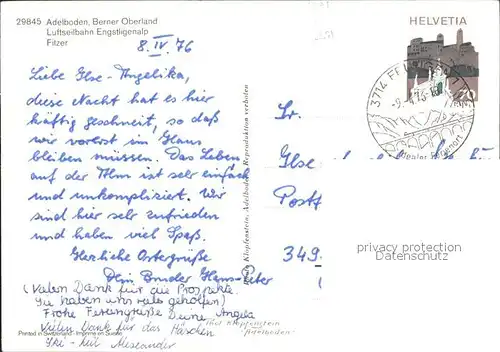 29845 Adelboden, Berner Oberland
Luftseilbahn Engstligenalp
Fitzer
8. IV. 76
HELVETIA
3714 FRUTIGEN
-9.-4.76-
Liebe Ilse-Angelika,
diese Nacht hat es hier
kräftig geschneit, so daß
wir vorerst im Haus
bleiben müssen. Das Leben
auf der Alm ist sehr einfach
und unkompliziert. Wir
sind hier sehr zufrieden
und haben viel Spaß.
Herzliche Ostergrüße
Dein Bruder Hans-Peter
(Vielen Dank für die Prospekte.
Sie haben uns geholfen)
Frohe Feriengrüße Deine Angela
Vielen Dank für das Häschen
Ski-Heil Alexander
Fr.
Ilse
Postf
349
privacy protection
Datenschutz
Klopfenstein, Adelboden - Reproduktion verboten
Thea Klopfenstein
Adelboden
Printed in Switzerland - Imprimé en Suisse